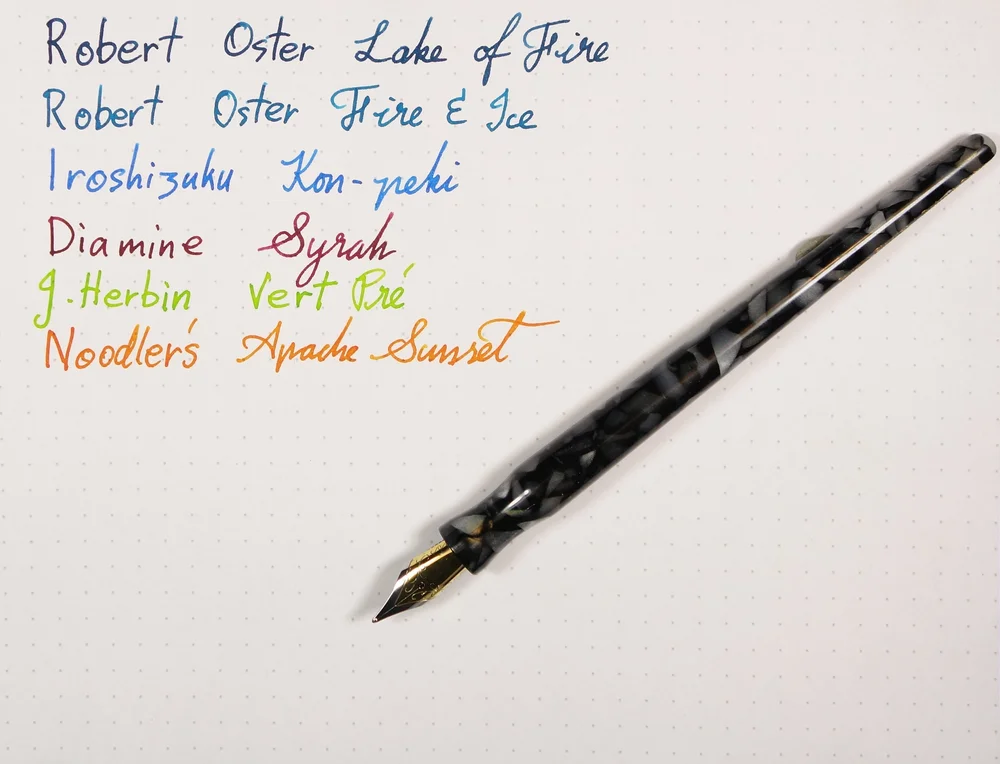 Robert Oster Lake of Fire
Robert Oster Fire & Ice
Iroshizuku Kon-peki
Diamine Syrah
J. Herbin Vert Pré
Noodler's Apache Sunset